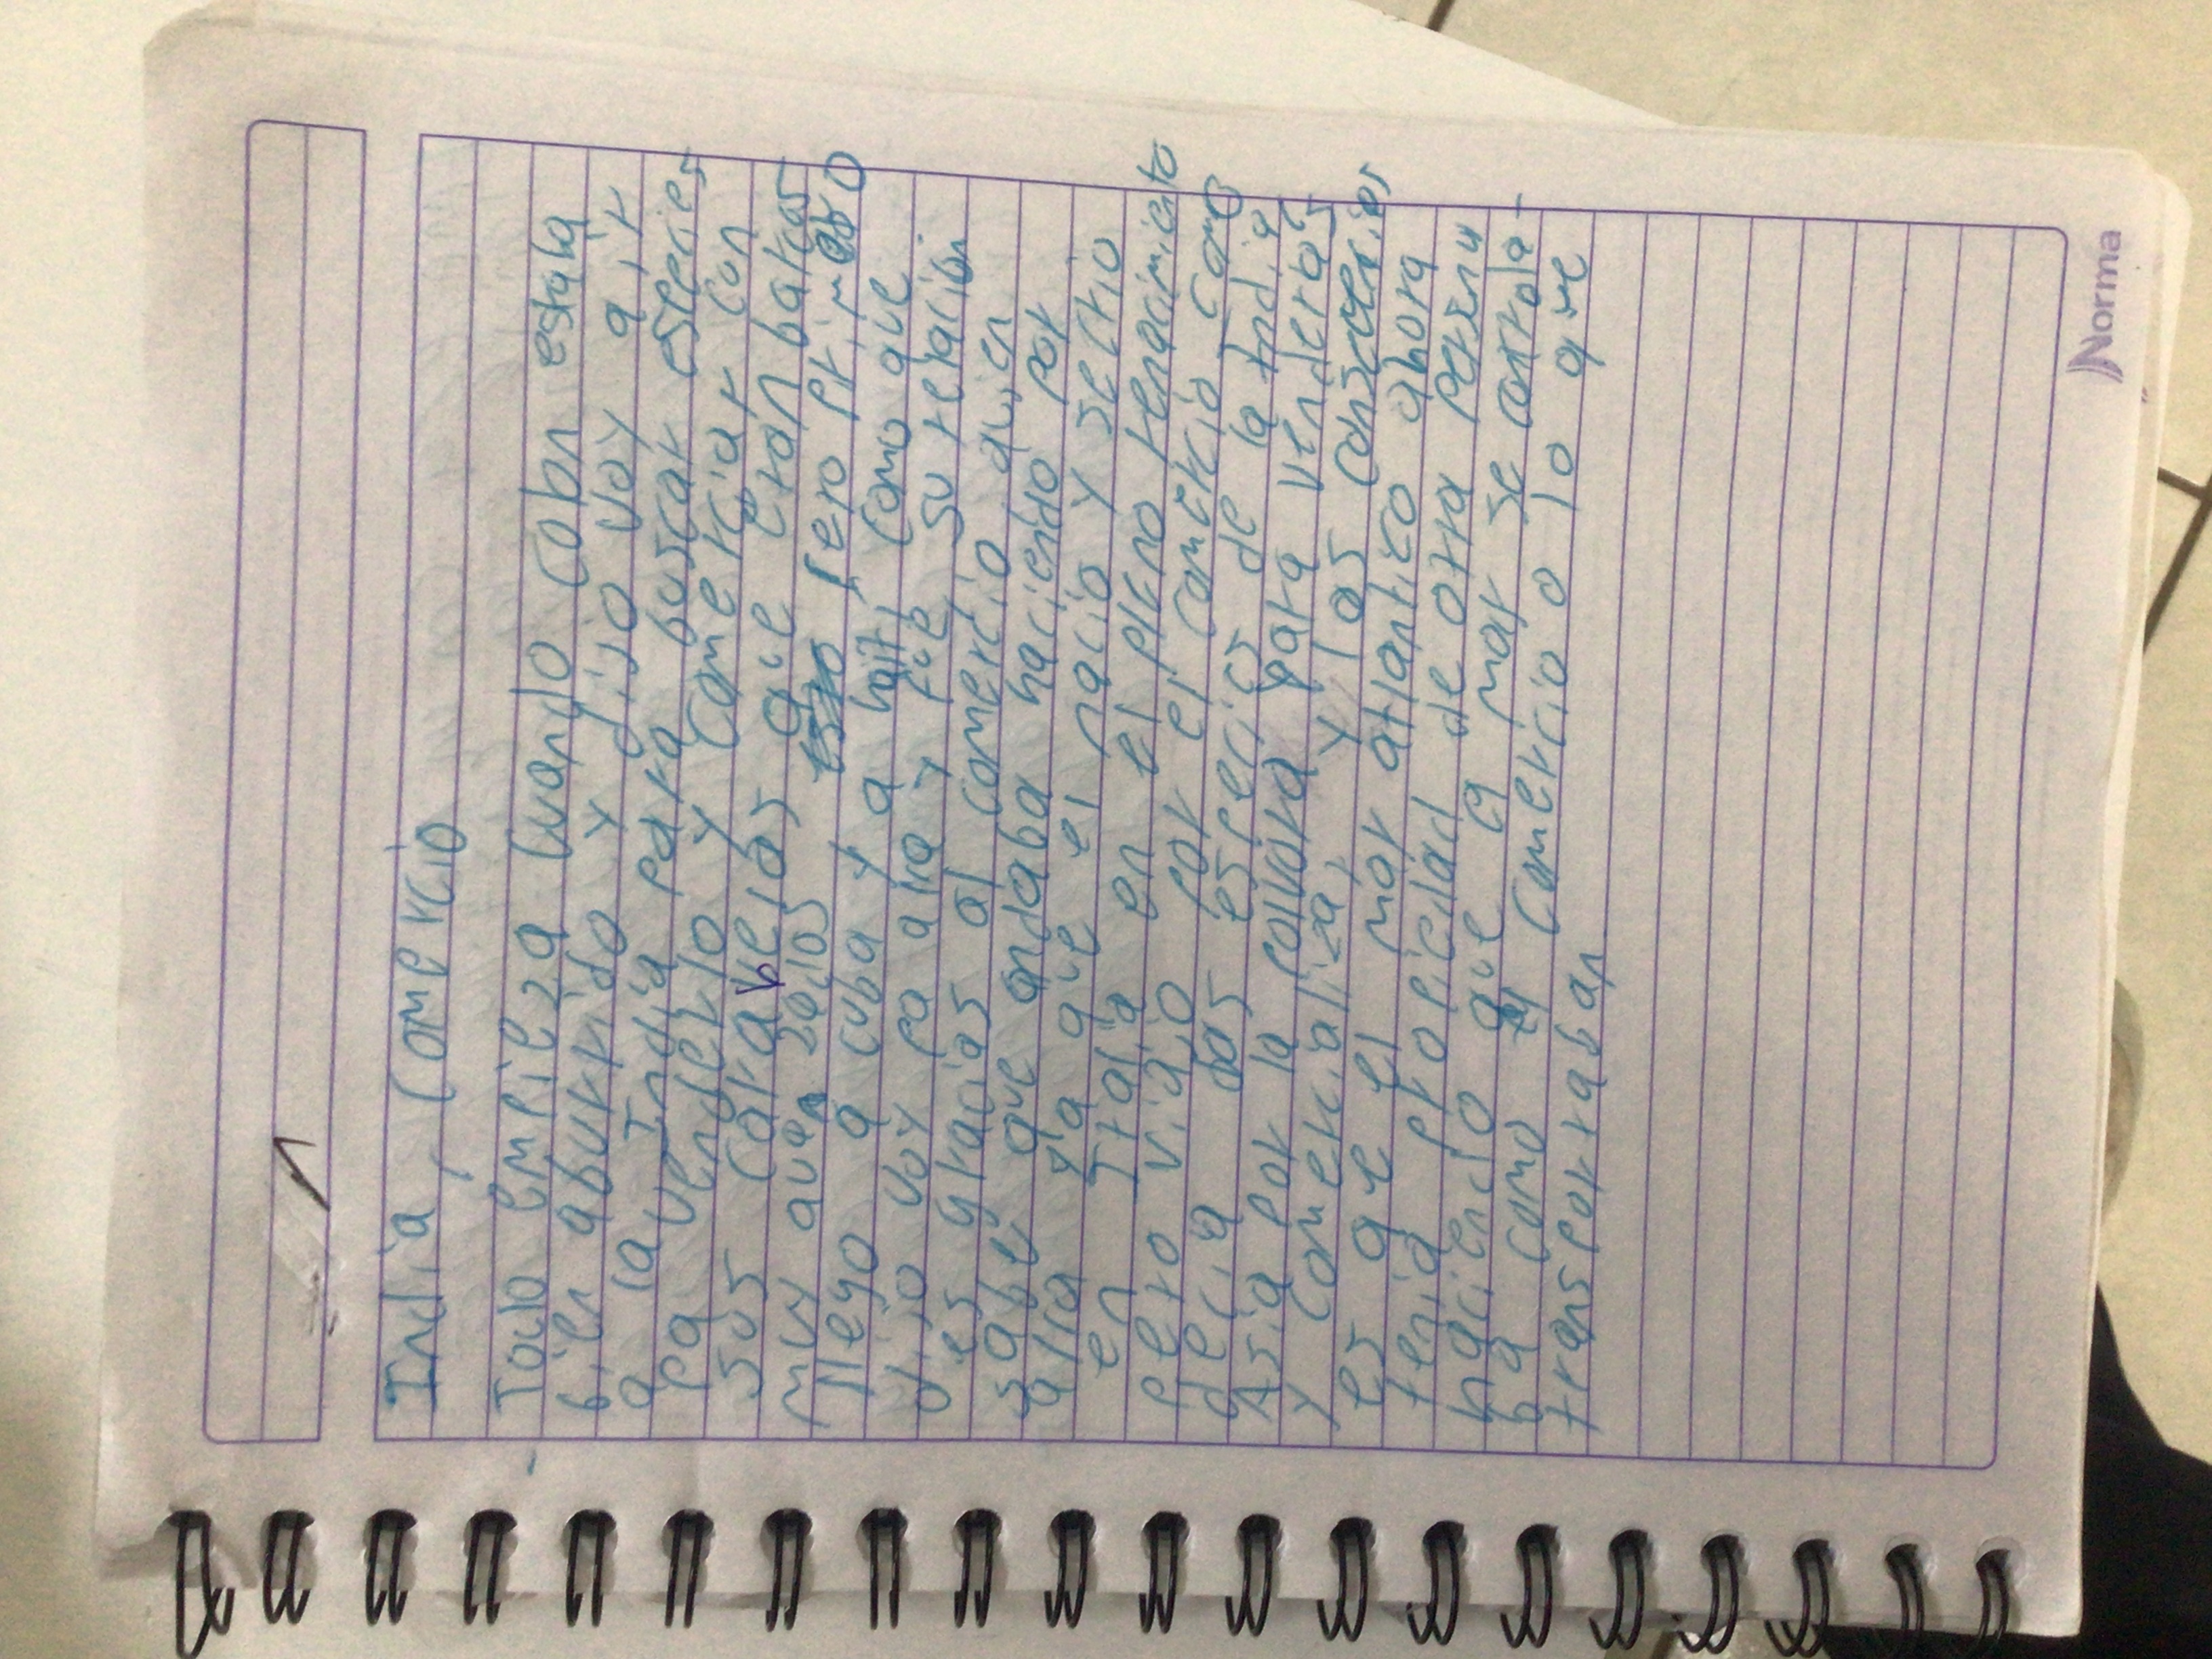 India, Comercio
Todo empieza cuando Colon estaba
bien aburrido y dijo voy a ir
a la India para buscar especies
pa venderlo y comerciar con
sus carabelas que eran barcos
muy aven zados Pero primero
llego a cuba y a haiti como que
dijo voy pa alla y fue su relación
es gracias al comercio quien
sabe que andaba haciendo por
alla ya que el nacio y se crio
en Italia en el pleno renacimiento
pero viajo por el comercio como
decia las especies de la India
Asia por la polvora para venderlas
y comercializa, y las consecuencias
es que el mar atlantico ahora
tenia propicidad de otra persona
haciendo que el mar se controla-
ba como el comercio o lo que
transportaban
Norma